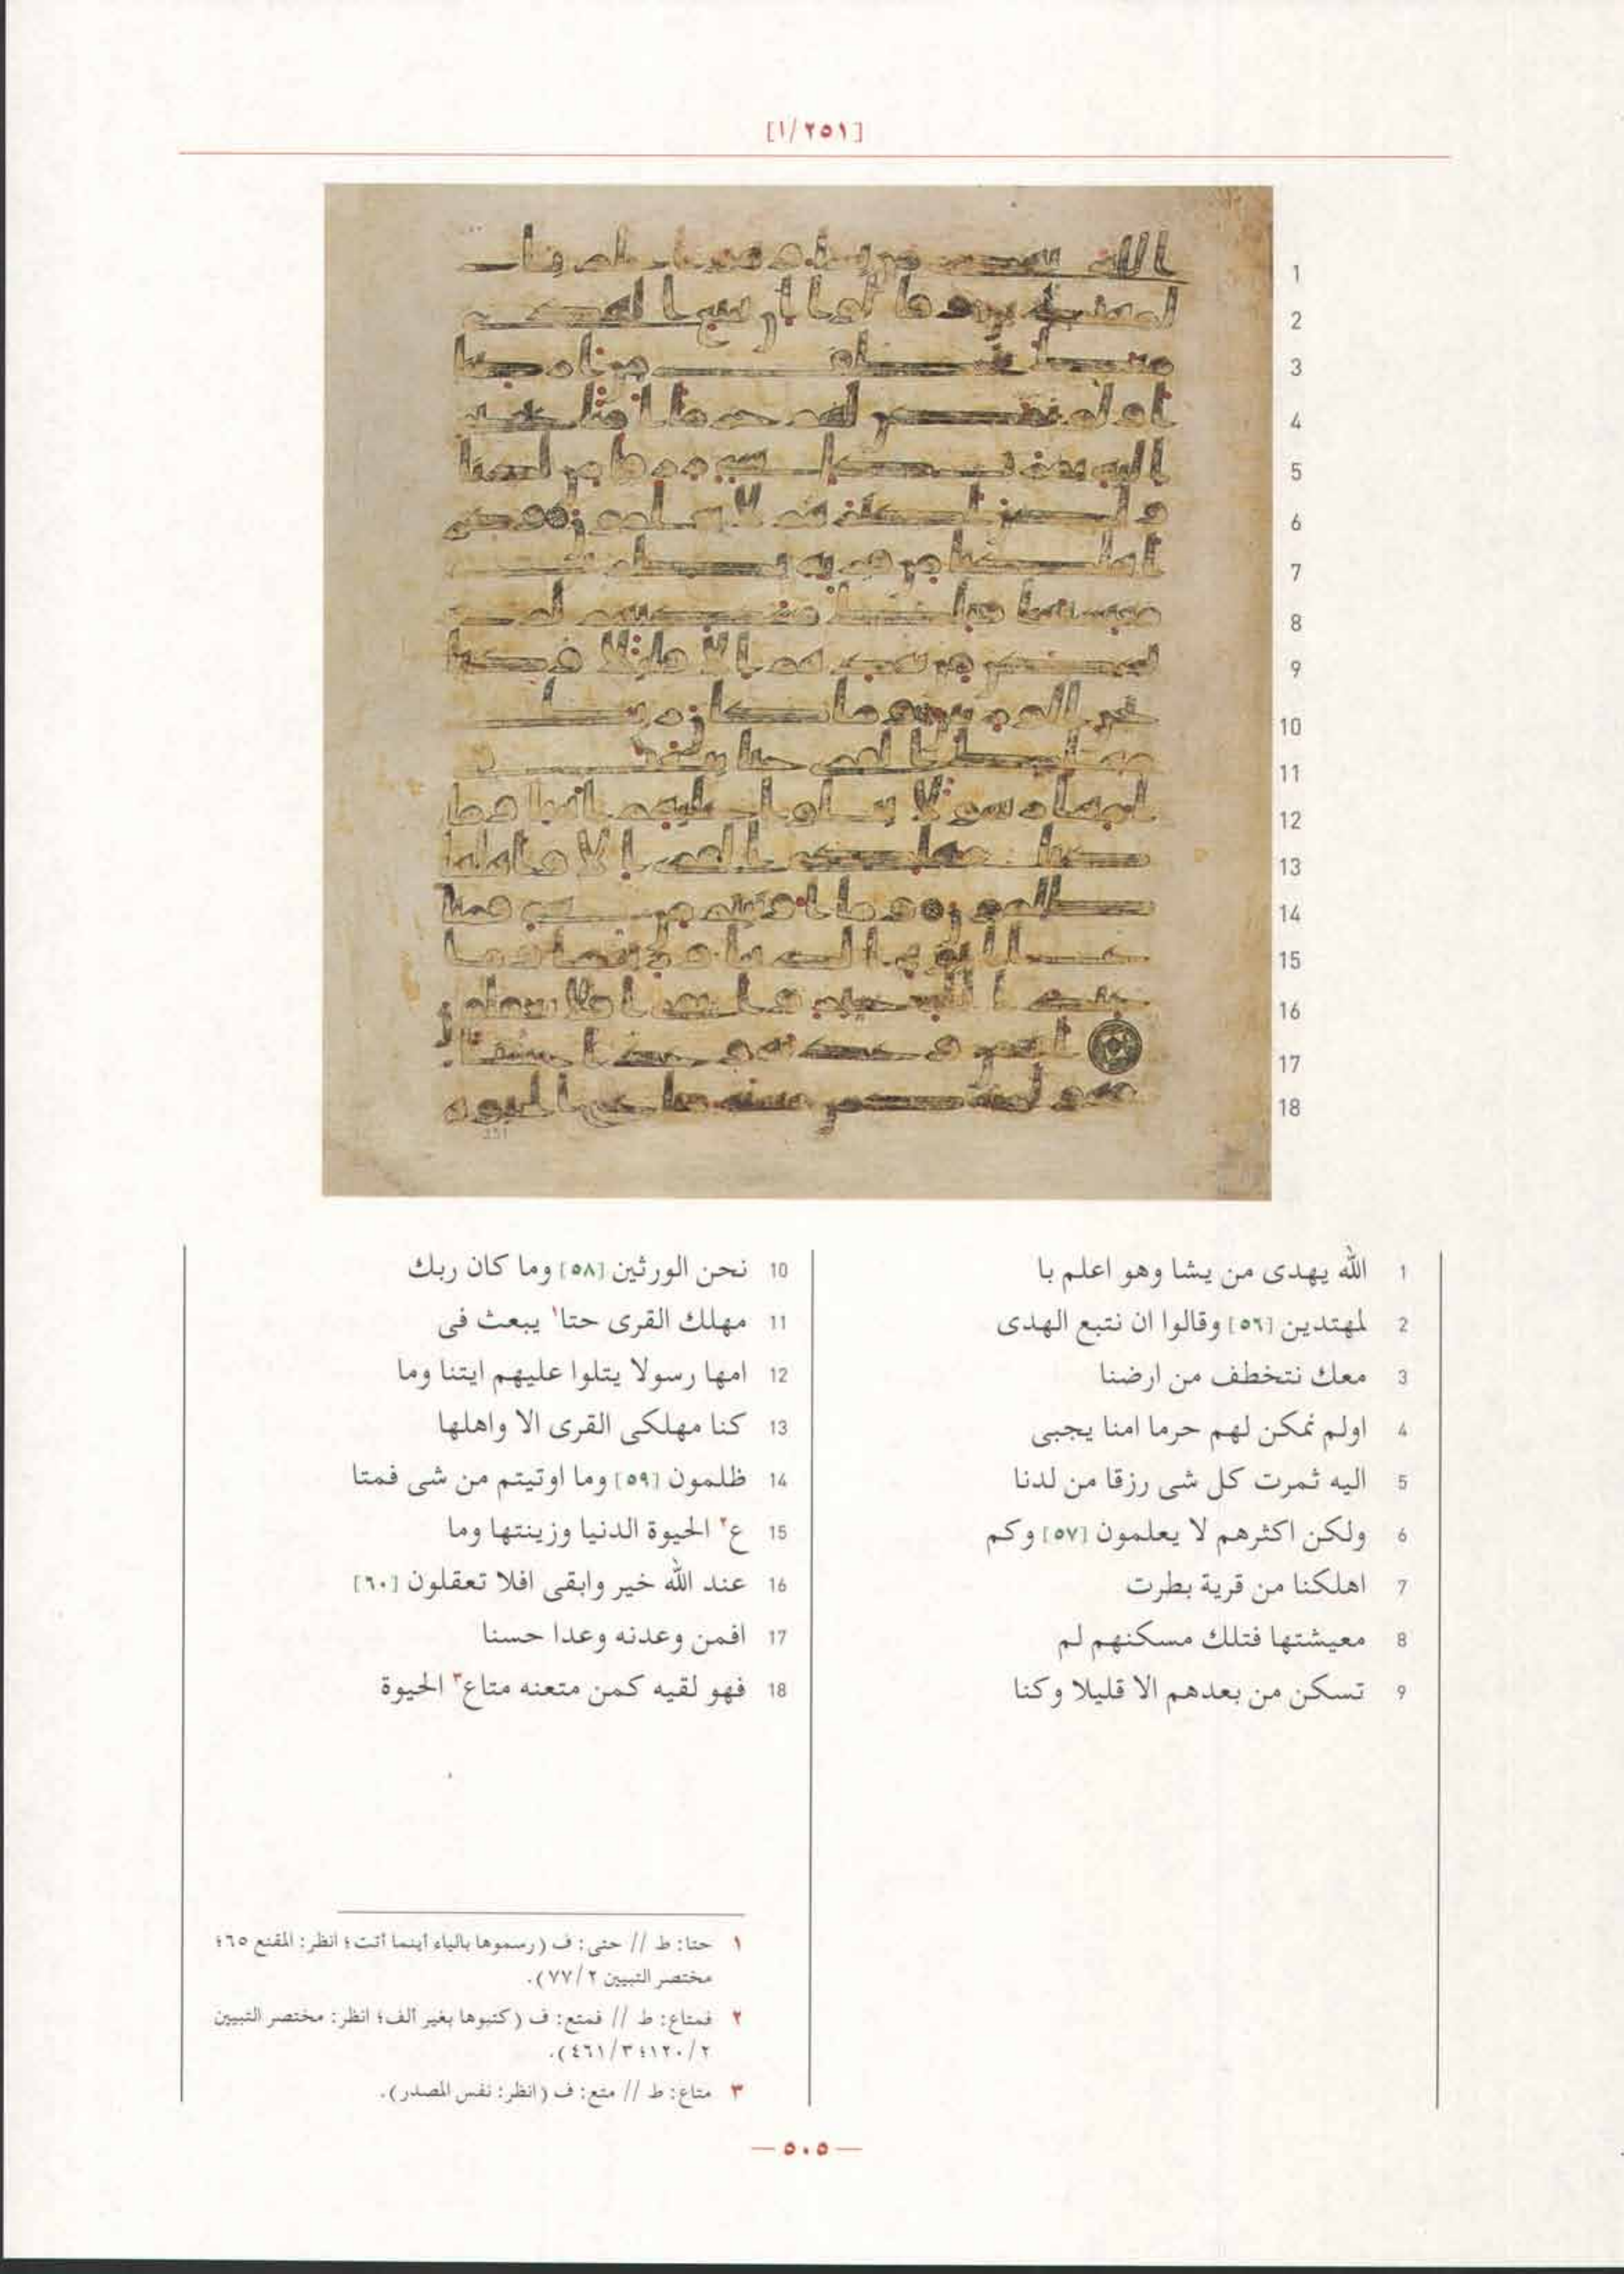 [٢٥١/١]
1 الله يهدى من يشا وهو اعلم با
2 لمهتدين [٥٦] وقالوا ان نتبع الهدى
3 معك نتخطف من ارضنا
4 اولم نمكن لهم حرما امنا يجبى
5 اليه ثمرت كل شى رزقا من لدنا
6 ولكن اكثرهم لا يعلمون [٥٧] وكم
7 اهلكنا من قرية بطرت
8 معيشتها فتلك مسكنهم لم
9 تسكن من بعدهم الا قليلا وكنا
10 نحن الورثين [٥٨] وما كان ربك
11 مهلك القرى حتا١ يبعث فى
12 امها رسولا يتلوا عليهم ايتنا وما
13 كنا مهلكى القرى الا واهلها
14 ظلمون [٥٩] وما اوتيتم من شى فمتا
15 ع٢ الحيوة الدنيا وزينتها وما
16 عند الله خير وابقى افلا تعقلون [٦٠]
17 افمن وعدنه وعدا حسنا
18 فهو لقيه كمن متعنه متاع٣ الحيوة
١ حتا: ط // حتى: ف (رسموها بالياء أينما أتت؛ انظر: المقنع ٦٥؛
مختصر التبيين ٢/٧٧).
٢ فمتاع: ط // فمتع: ف (كتبوها بغير ألف؛ انظر: مختصر التبيين
٢/١٢٠؛ ٣/٤٦١).
٣ متاع: ط // متع: ف (انظر: نفس المصدر).
— ٥٠٥ —